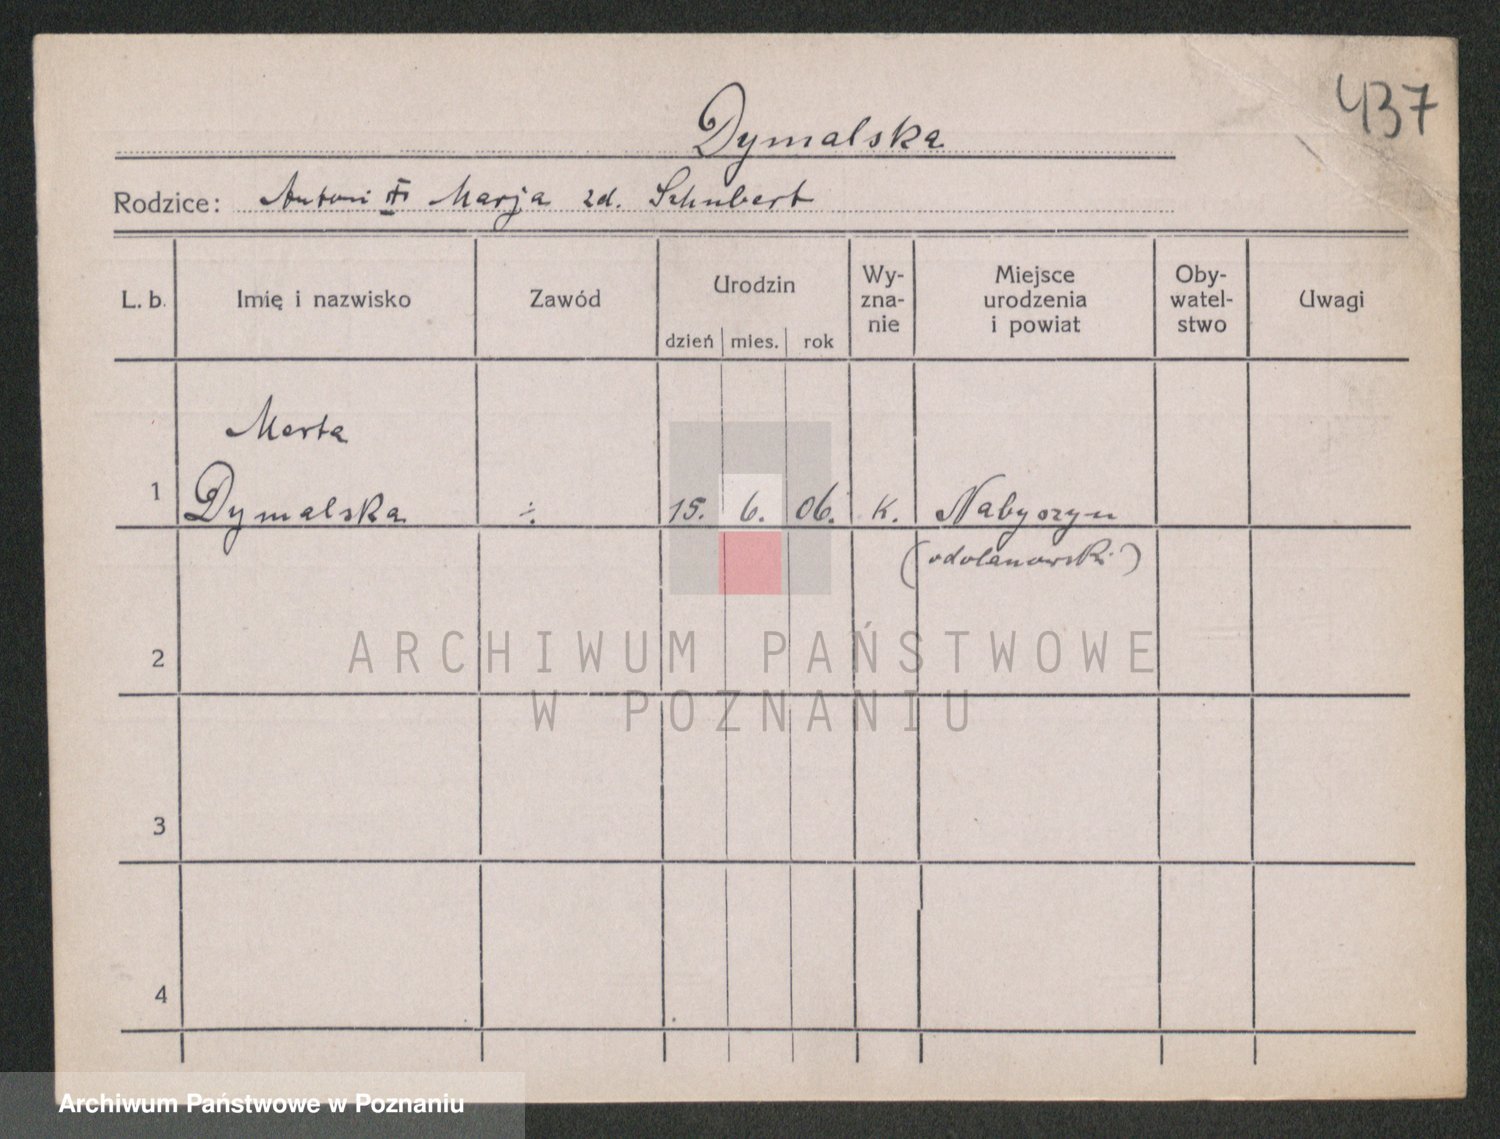 437
Dymalska
Rodzice: Antoni i Marja zd. Schubert
L. b. Imię i nazwisko Zawód Urodzin dzień mies. rok Wy-zna-nie Miejsce urodzenia i powiat Oby-watel-stwo Uwagi
Marta
1 Dymalska ÷. 15. 6. 06. k. Nabyszyn
(odolanowski)
2
ARCHIWUM PAŃSTWOWE
W POZNANIU
3
4
Archiwum Państwowe w Poznaniu